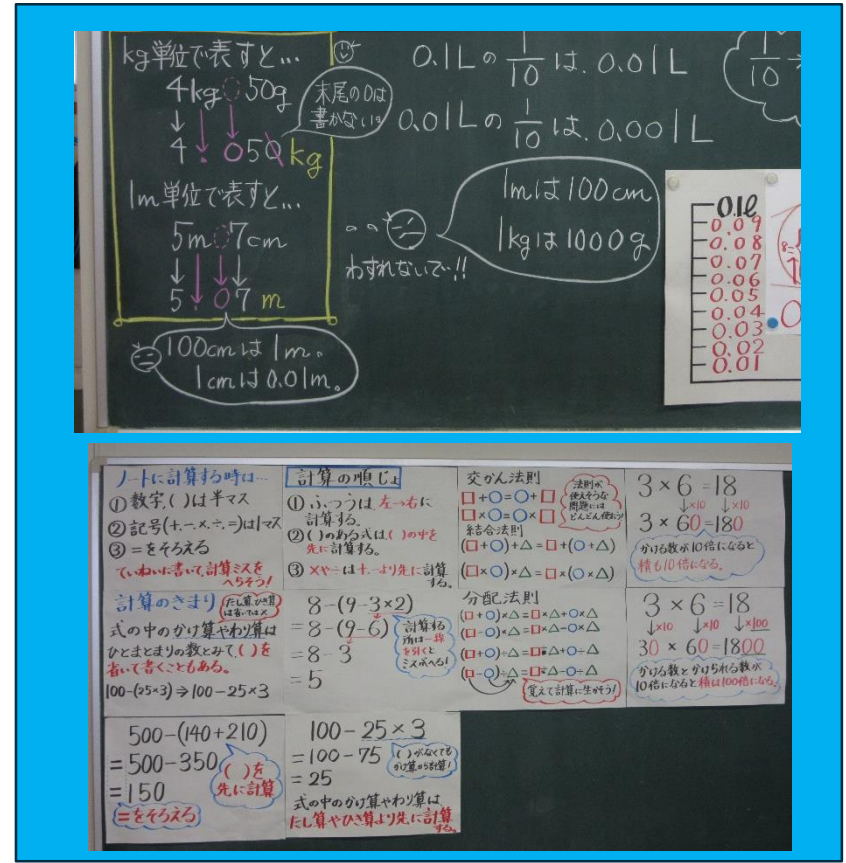 kg単位で表すと…
4kg 50g
末尾の0は
書かない。
4.050kg
1m単位で表すと…
5m 7cm
5.07m
100cmは1m。
1cmは0.01m。
0.1Lの1/10は、0.01L
0.01Lの1/10は、0.001L
1/10
1mは100cm
1kgは1000g
わすれないで!!
0.1ℓ
0.09
0.08
0.07
0.06
0.05
0.04
0.03
0.02
0.01
ノートに計算する時は…
①数字,( )は半マス
②記号(+.−.×.÷.=)は1マス
③=をそろえる
ていねいに書いて計算ミスを
へらそう!
計算の順じょ
①ふつうは左→右に
計算する。
②( )のある式は( )の中を
先に計算する。
③×や÷は+.−より先に計算
する。
交かん法則
□+○=○+□
□×○=○×□
法則が
使えそうな
問題には
どんどん使おう!
結合法則
(□+○)+△=□+(○+△)
(□×○)×△=□×(○×△)
3×6=18
↓×10 ↓×10
3×60=180
かける数が10倍になると
積も10倍になる。
計算のきまり
たし算、ひき算
は省いては×
式の中のかけ算やわり算は
ひとまとまりの数とみて、( )を
省いて書くこともある。
100-(25×3)⇒100-25×3
8-(9-3×2)
=8-(9-6)
=8-3
=5
計算する
所は一線
を引くと
ミスがへる!
分配法則
(□+○)×△=□×△+○×△
(□-○)×△=□×△-○×△
(□+○)÷△=□÷△+○÷△
(□-○)÷△=□÷△-○÷△
覚えて計算に生かそう!
3×6=18
↓×10 ↓×10 ↓×100
30×60=1800
かける数とかけられる数が
10倍になると積は100倍になる。
500-(140+210)
=500-350
=150
( )を
先に計算
=をそろえる
100-25×3
=100-75
=25
( )がなくても
かけ算から計算!
式の中のかけ算やわり算は
たし算やひき算より先に計算
する。